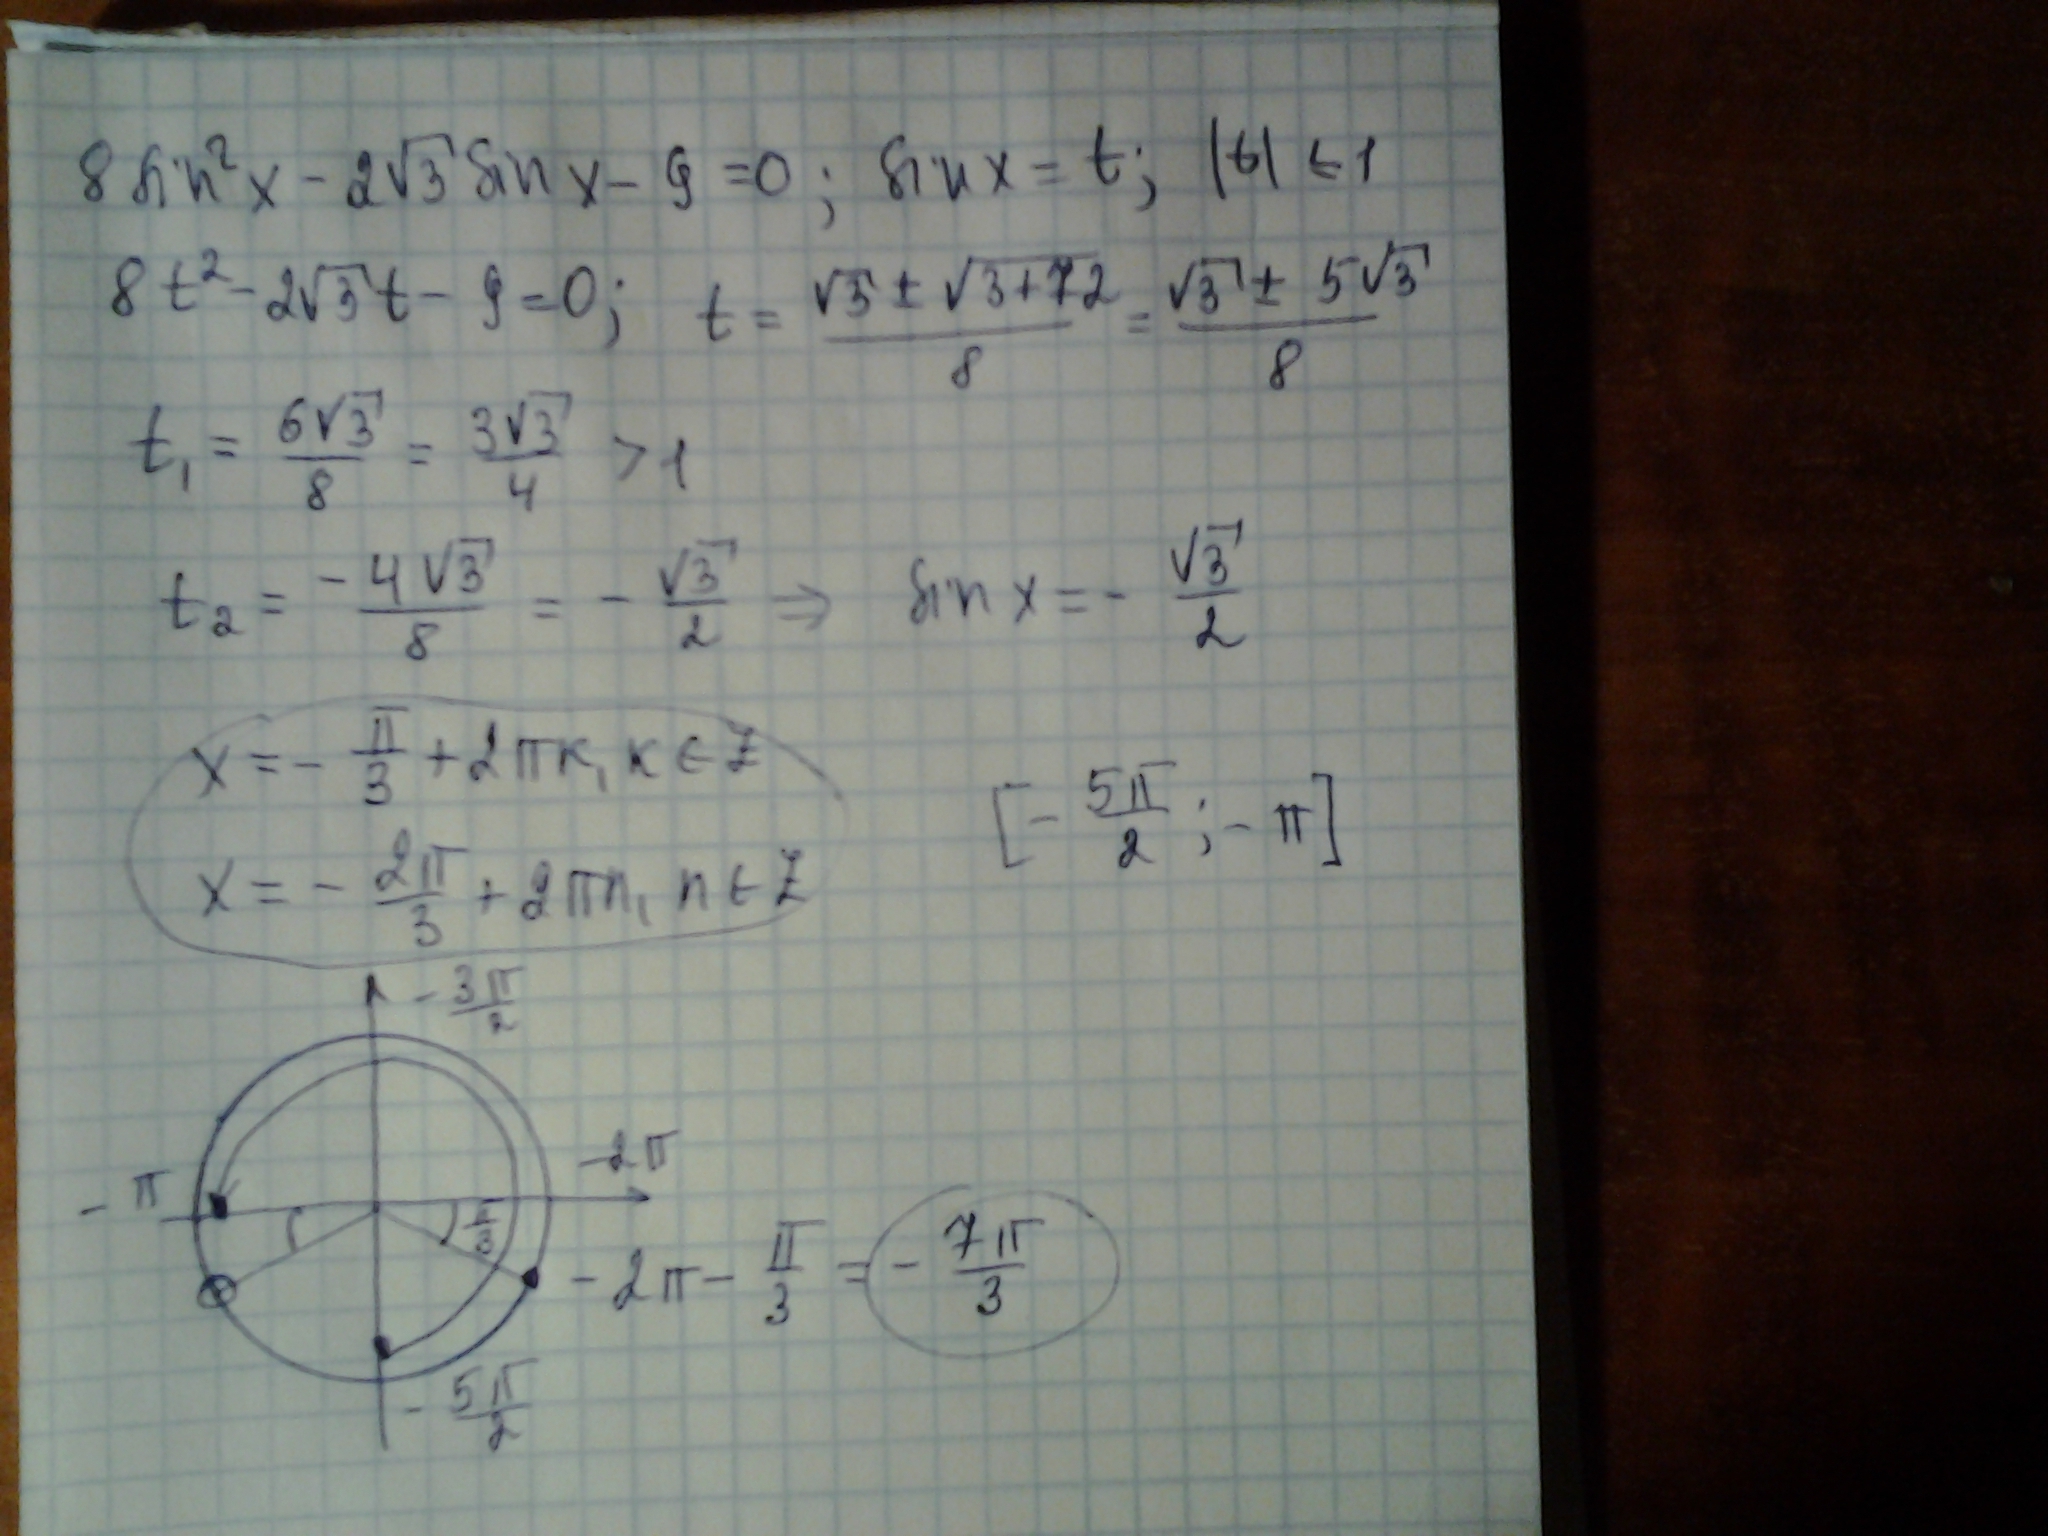 8 sin²x - 2√3 sin x - 9 = 0 ; sin x = t; |t| ≤ 1
8t² - 2√3t - 9 = 0; t = (√3 ± √(3+72))/8 = (√3 ± 5√3)/8
t₁ = 6√3/8 = 3√3/4 > 1
t₂ = -4√3/8 = -√3/2 ⇒ sin x = -√3/2
x = -π/3 + 2πк, к ∈ Z
[-5π/2 ; -π]
x = -2π/3 + 2πn, n ∈ Z
-3π/2
-2π
-π
π/3
-2π - π/3 = -7π/3
-5π/2